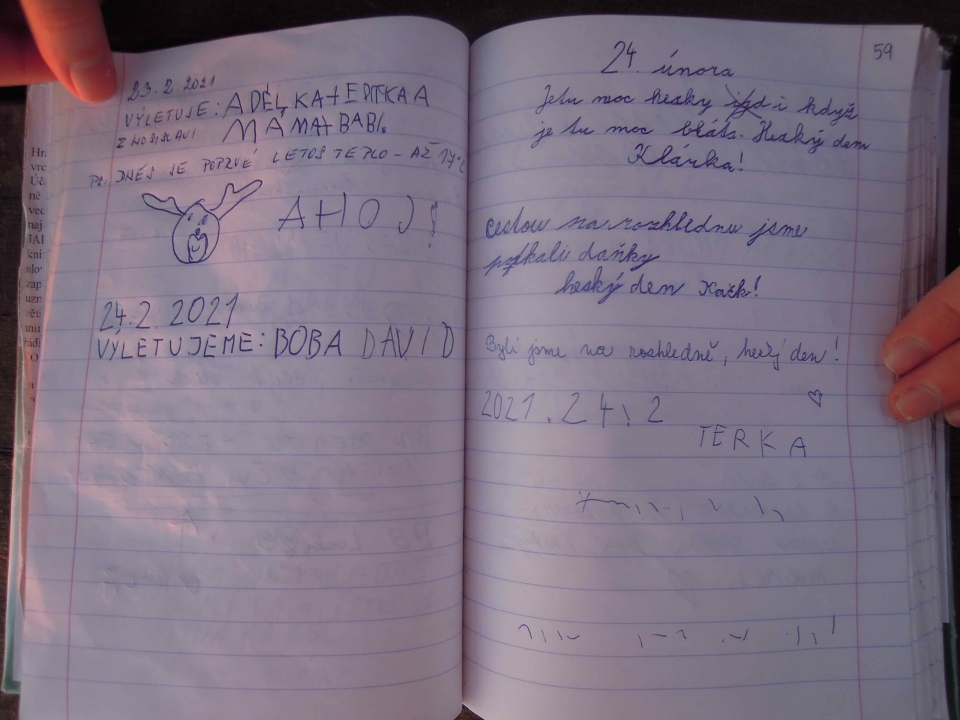 23.2.2021
VÝLETUJE: ADÉLKA + EDITKA A
MÁMA + BABI.
PS. DNES JE POPRVÉ LETOS TEPLO - AŽ 17°C
AHOJ!
24.2.2021
VÝLETUJEME: BOBA DAVID
59
24. února
Je tu moc hezky i když
je tu moc bláta. Hezký den
Klárka!
cestou na rozhlednu jsme
potkali daňky
hezký den Kačk!
Byli jsme na rozhledně, hezký den!
2021.24.2
TERKA